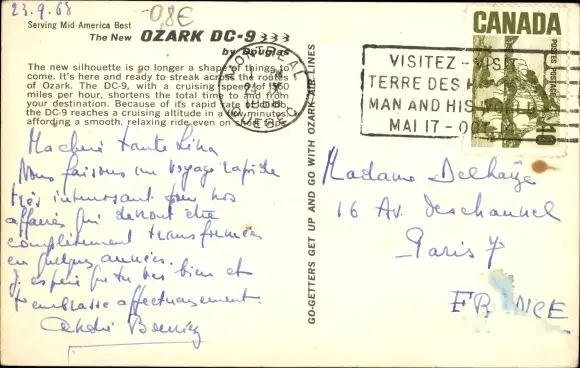 23.9.68
0,8€
Serving Mid-America Best
The New OZARK DC-9
by Douglas
The new silhouette is no longer a shape of things to
come. It's here and ready to streak across the routes
of Ozark. The DC-9, with a cruising speed of
miles per hour, shortens the total time to and from
your destination. Because of its rapid rate of climb,
the DC-9 reaches a cruising altitude in a few minutes,
affording a smooth, relaxing ride even on short trips.
MONTREAL
QUEBEC
VISITEZ - VISIT
TERRE DES H
MAN AND HIS WORLD
MAI 17 - OCT
CANADA
POSTES POSTAGE
10
GO-GETTERS GET UP AND GO WITH OZARK AIR LINES
Ma chère tante Lina
Nous faisons un voyage rapide
très intéressant pour nos
affaires qui devront être
complètement transformées
en quelques années.
J'espère que tu vas bien et
t'embrasse affectueusement
André
Madame Delhaize
16 Av. deschanel
Paris 7
FRANCE